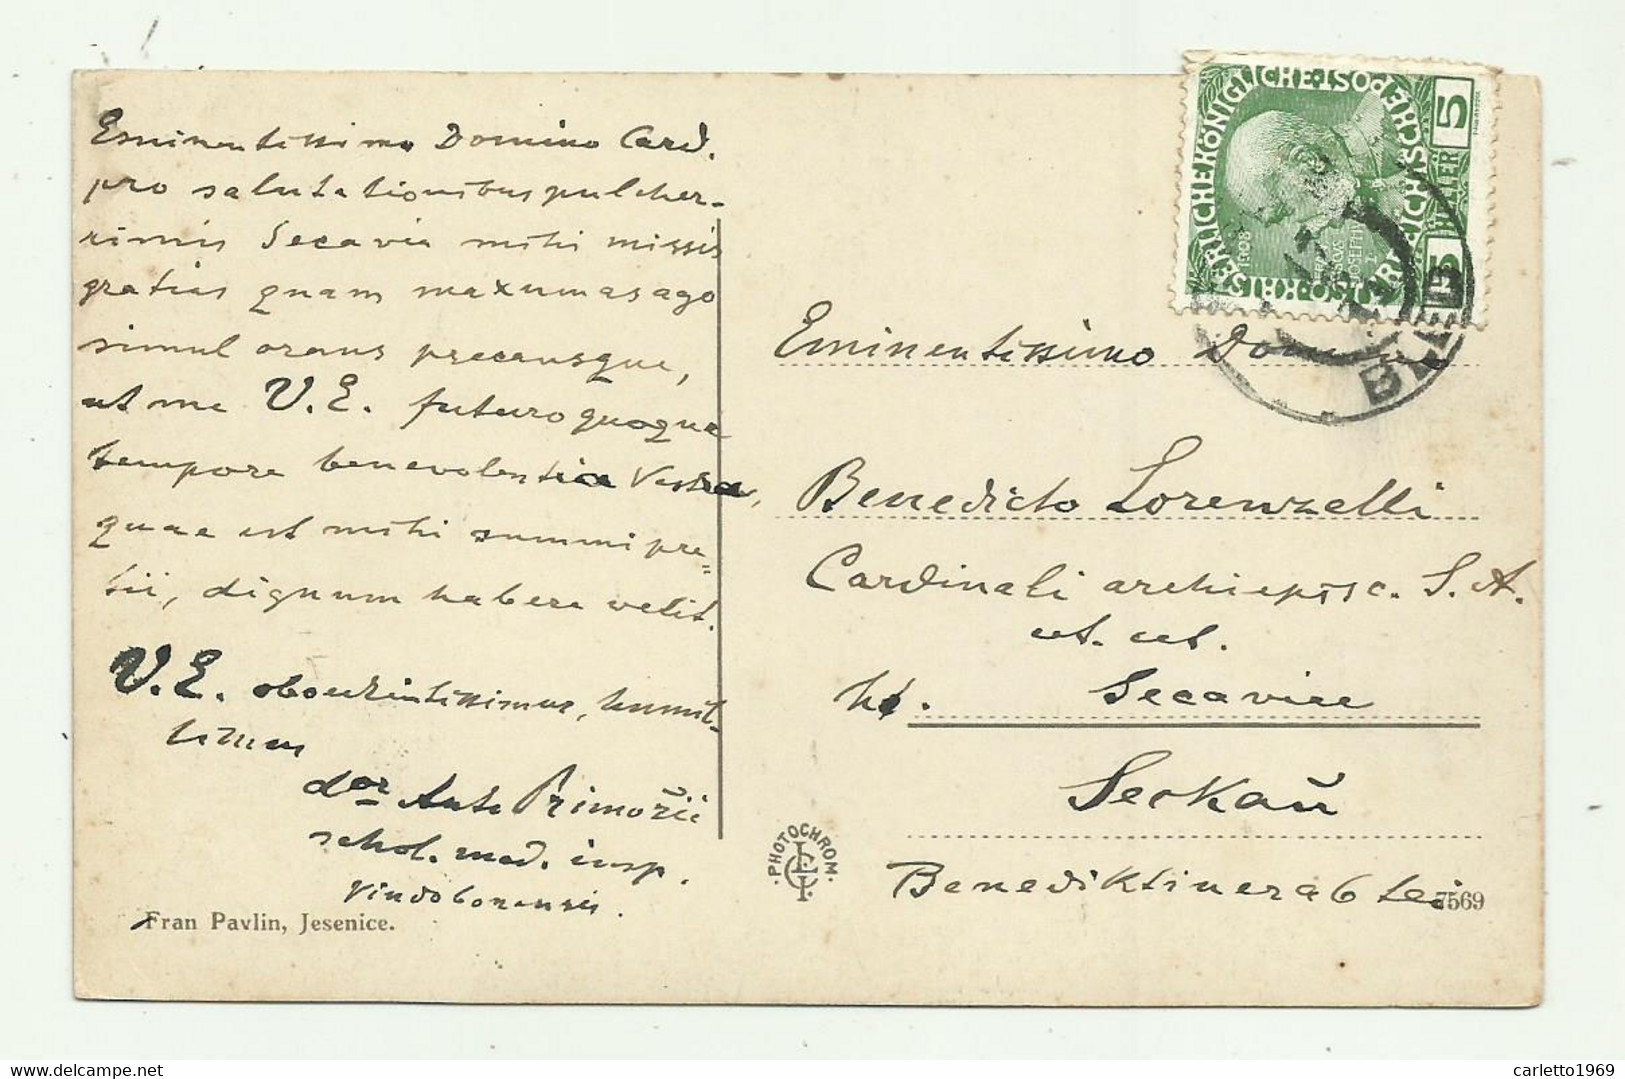 Eminentissimo Domino Card.
pro salutationibus pulcher-
rimis Secavia mihi missis
gratias quam maxumas ago
simul orans precansque,
ut me V. E. futuro quoque
tempore benevolentia Vestra,
quae est mihi summi pre=
tii, dignum habere velit.
V. E. oboedientissimus, humil-
limus
dor Ante Primožič
schol. med. insp.
Vindobonensis.
Fran Pavlin, Jesenice.
KAISERLICHE KÖNIGLICHE ÖSTERREICHISCHE POST
5 HELLER 5
1908
BLED
Eminentissimo
Benedicto Lorenzelli
Cardinali archiepisc. S. A.
Secaviae
Seckau
Benediktinerabtei
PHOTOCHROM
7569
carletto1969